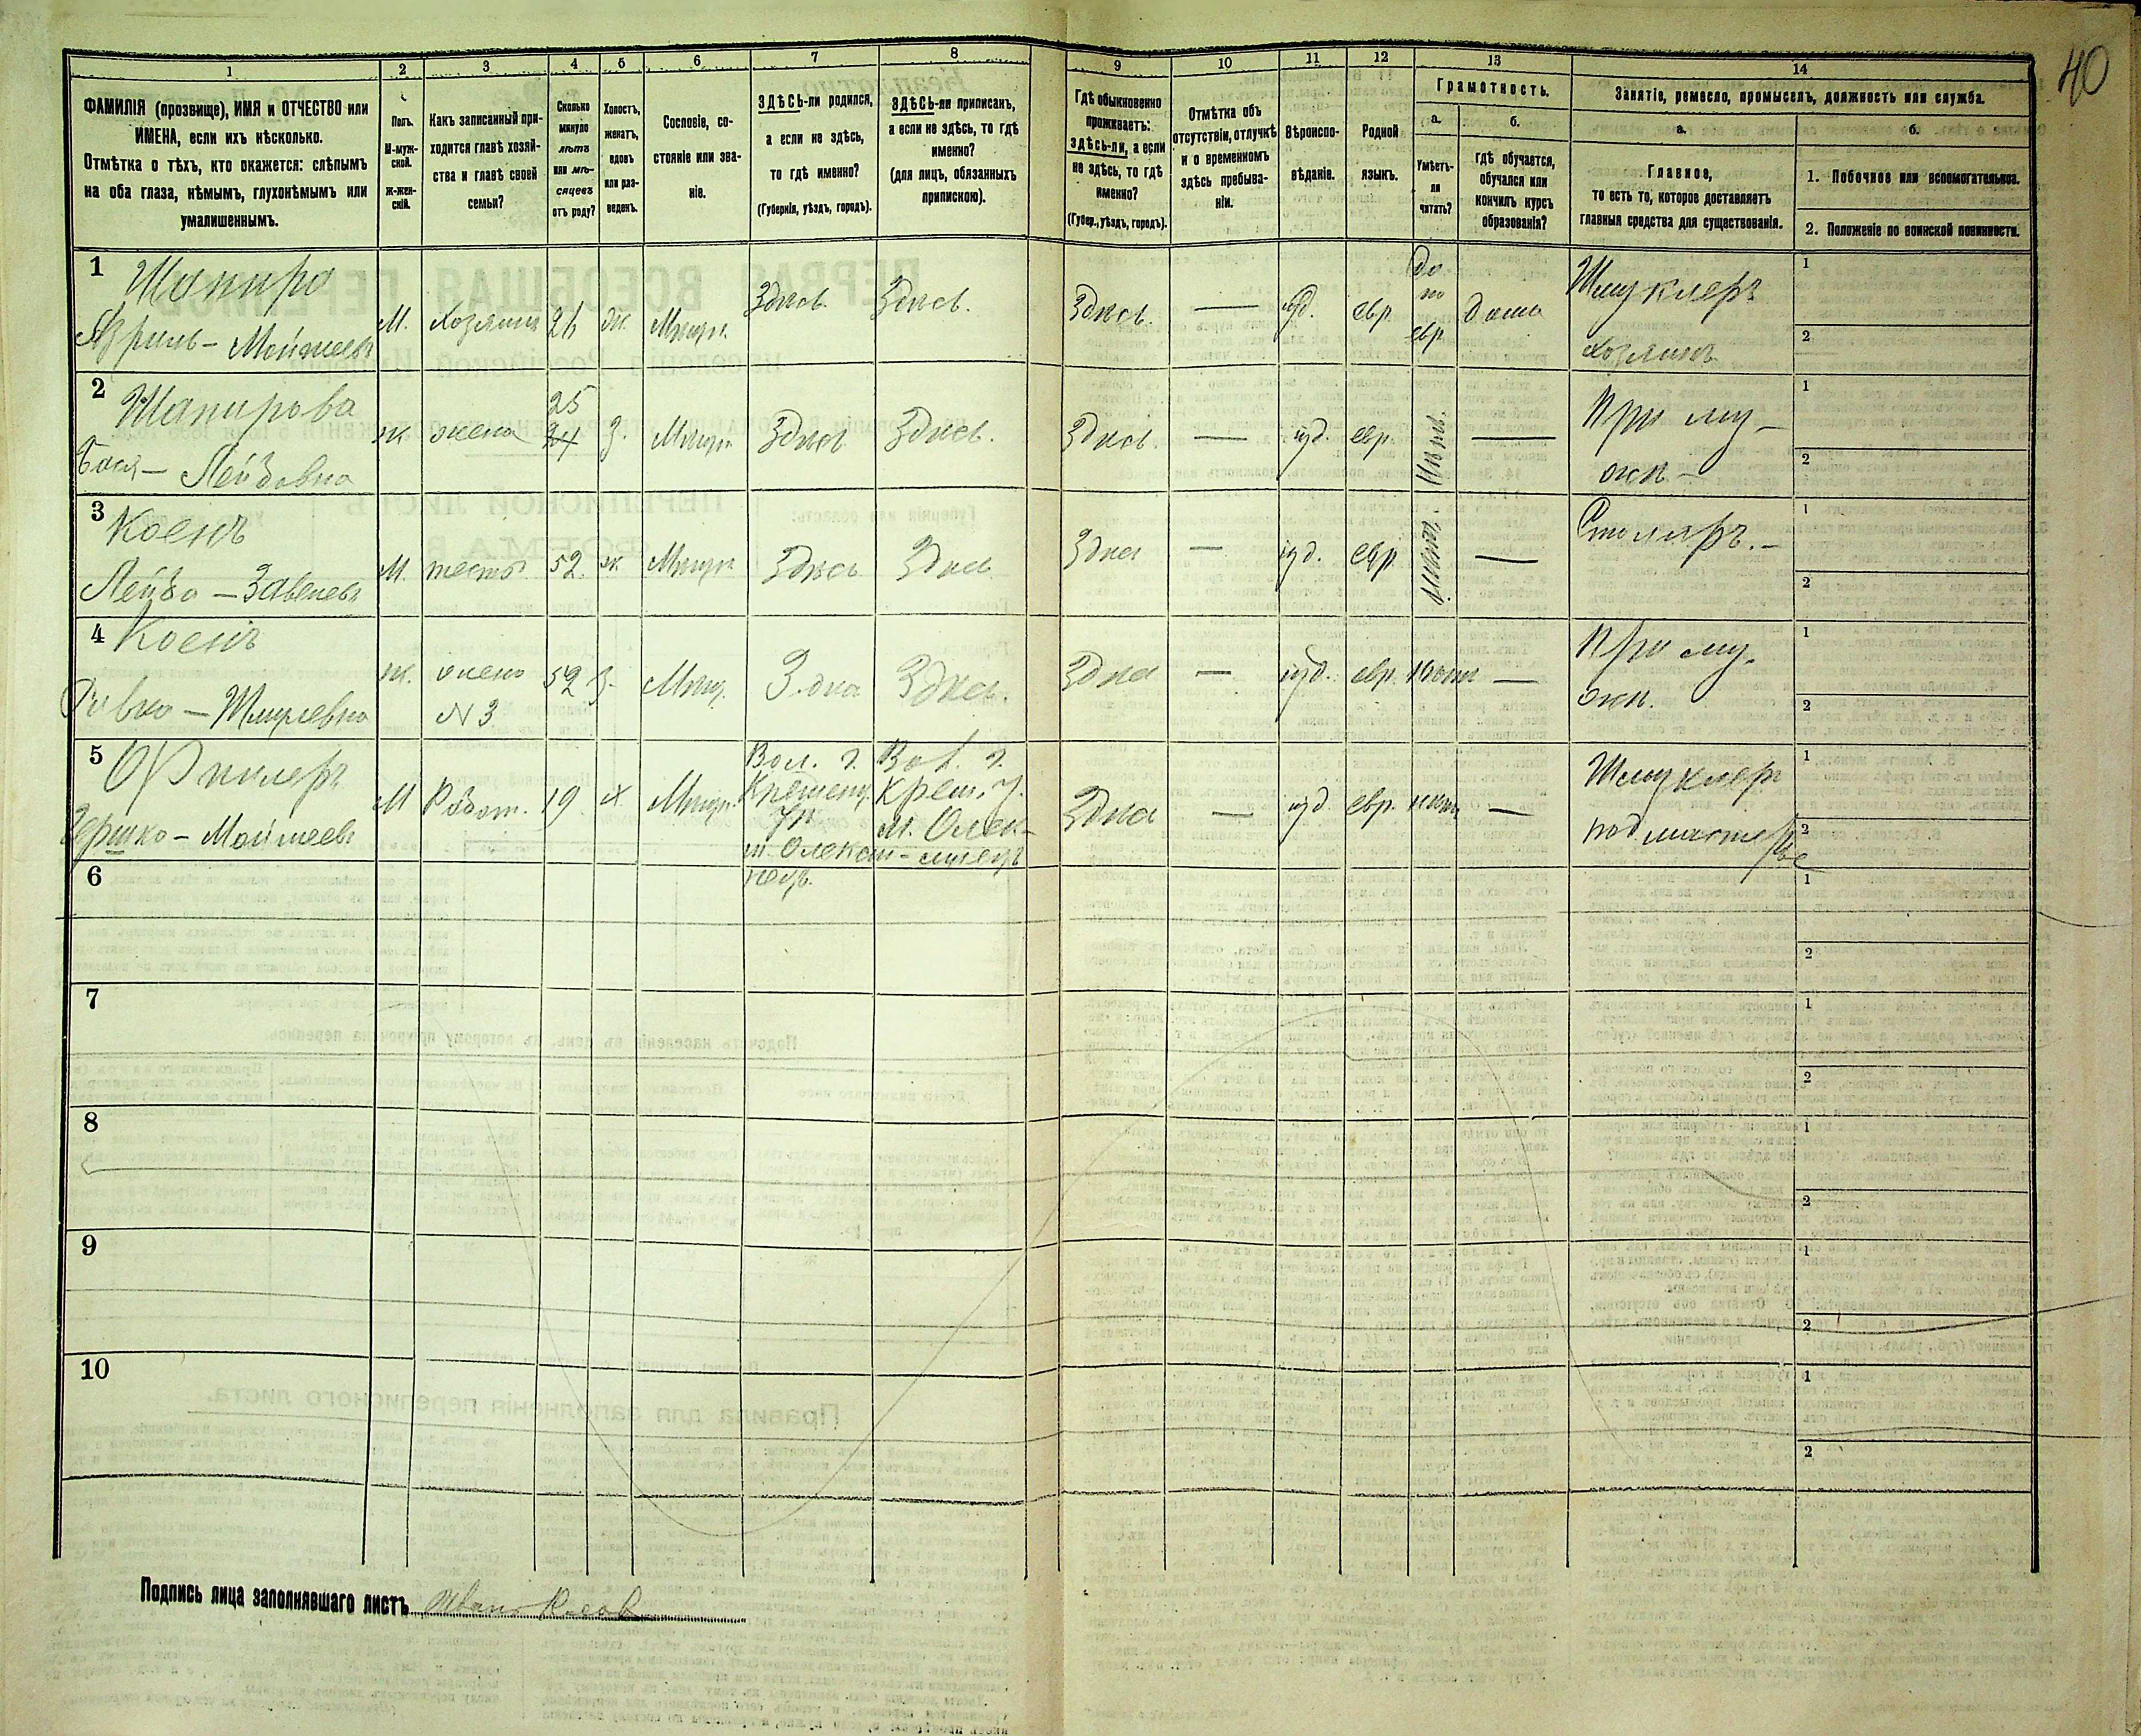 40
1 2 3 4 5 6 7 8 9 10 11 12 13 14
ФАМИЛІЯ (прозвище), ИМЯ и ОТЧЕСТВО или
ИМЕНА, если ихъ нѣсколько.
Отмѣтка о тѣхъ, кто окажется: слѣпымъ
на оба глаза, нѣмымъ, глухонѣмымъ или
умалишеннымъ.
Полъ.
М-муж-
ской.
Ж-жен-
скій.
Какъ записанный при-
ходится главѣ хозяй-
ства и главѣ своей
семьи?
Сколько
минуло
лѣтъ
или мѣ-
сяцевъ
отъ роду?
Холостъ,
женатъ,
вдовъ
или раз-
веденъ.
Сословіе, со-
стояніе или зва-
ніе.
ЗДѢСЬ-ли родился,
а если не здѣсь,
то гдѣ именно?
(Губернія, уѣздъ, городъ).
ЗДѢСЬ-ли приписанъ,
а если не здѣсь, то гдѣ
именно?
(для лицъ, обязанныхъ
припискою).
Гдѣ обыкновенно
проживаетъ:
здѣсь-ли, а если
не здѣсь, то гдѣ
именно?
(Губер., уѣздъ, городъ).
Отмѣтка объ
отсутствіи, отлучкѣ
и о временномъ
здѣсь пребыва-
ніи.
Вѣроиспо-
вѣданіе.
Родной
языкъ.
Грамотность.
а.
Умѣетъ-
ли
читать?
б.
гдѣ обучается,
обучался или
кончилъ курсъ
образованія?
Занятіе, ремесло, промыселъ, должность или служба.
а.
Главное,
то есть то, которое доставляетъ
главныя средства для существованія.
б.
1. Побочное или вспомогательное.
2. Положеніе по воинской повинности.
1 Шапиро
Азриль - Мойшеевъ
М. хозяинъ 26 ж. Мѣщ. Здѣсь. Здѣсь. Здѣсь. — іуд. евр. да по евр. дома Шмуклеръ
хозяинъ
1
2
2 Шапирова
Бася - Лейбовна
ж жена 25 24 З. Мѣщ. Здѣсь Здѣсь. Здѣсь. — іуд. евр. нѣтъ. — При му-
жѣ -
1
2
3 Коенъ
Лейба - Завелевъ
М. тесть 52. ж Мѣщ. Здѣсь Здѣсь Здѣсь — іуд. евр. нѣтъ. — Столяръ. -
1
2
4 Коенъ
Ривка - Шмулевна
ж. жена
№ 3
52 З. Мѣщ. Здѣсь Здѣсь. Здѣсь — іуд. евр. нѣтъ — При му-
жѣ.
1
2
5
Гершко - Мойшеевъ
М Работ. 19 х Мѣщ. Вол. г.
Кременц.
у.
м. Олекси-
нецъ.
Вол. г.
Крем. у.
м. Олек-
синецъ
Здѣсь — іуд. евр. нѣтъ — Шмуклер
подмастерье
1
2
6
1
2
7
1
2
8
1
2
9
1
2
10
1
2
Подпись лица заполнявшаго листъ